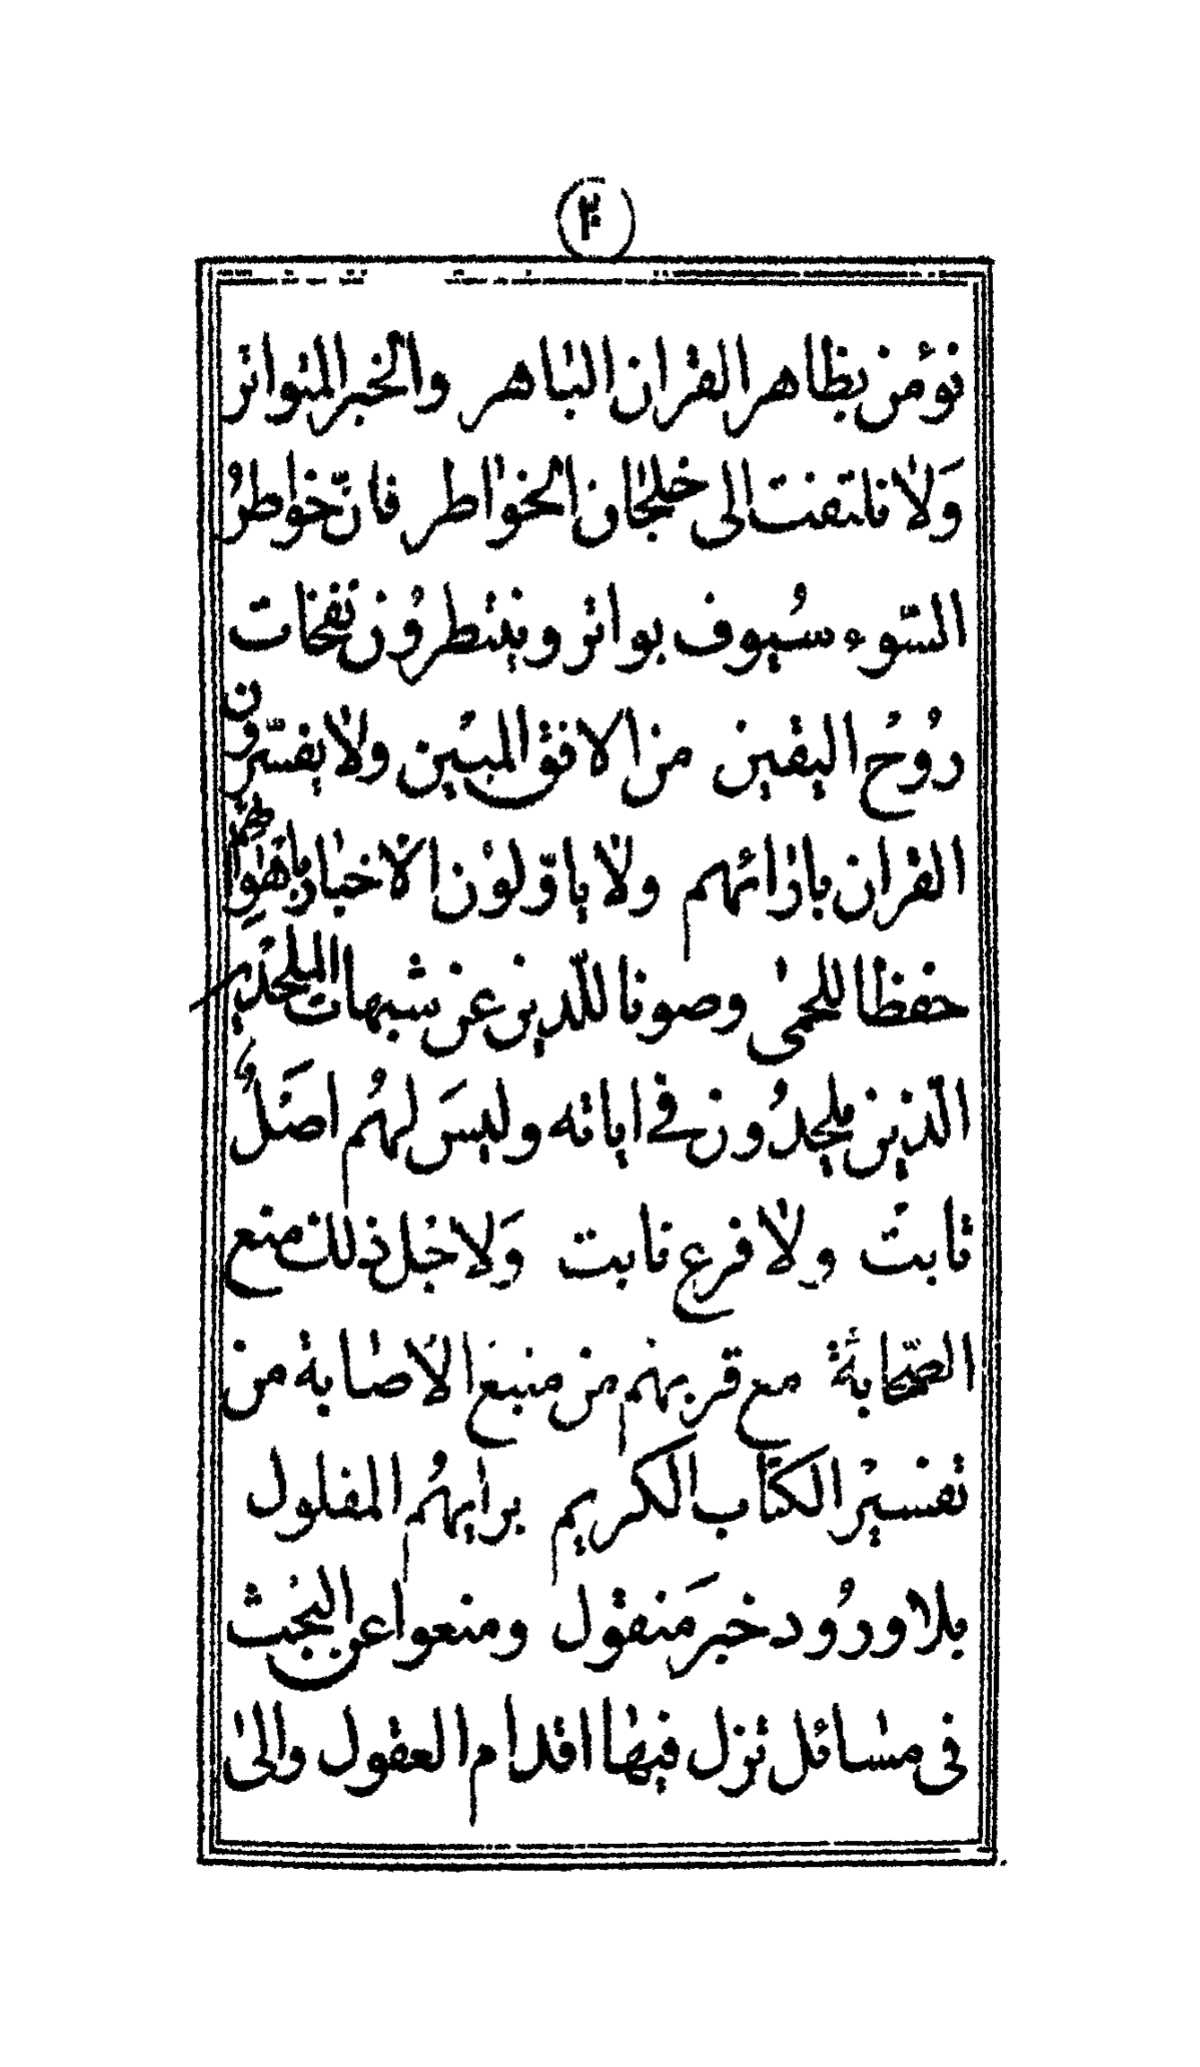 نؤمن بظاهر القران الباهر والخبر المتواتر
وَلا نلتفت الى خلجان الخواطر فانّ خواطرُ
السّوء سُيوف بواتر وينتظرُون نفخات
رُوحُ اليقين من الافق المبين ولا يفسّرون
القران بارائهم ولا ياوّلون الاخبار باهوائهم
حفظا للحمى وصونا للّدين عن شبهات الملحدين
الّذين يلحدُون في اياته وليسَ لهُم اصَلُ
ثابت ولا فرع نابت وَلاجل ذلك منع
الصّحابَة مع قربهم من منبع الاصابة من
تفسير الكتاب الكريم برايهُم المفلول
بلا ورُود خبرَ منقول ومنعوا عن البحث
فى مسائل تزل فيها اقدام العقول والى